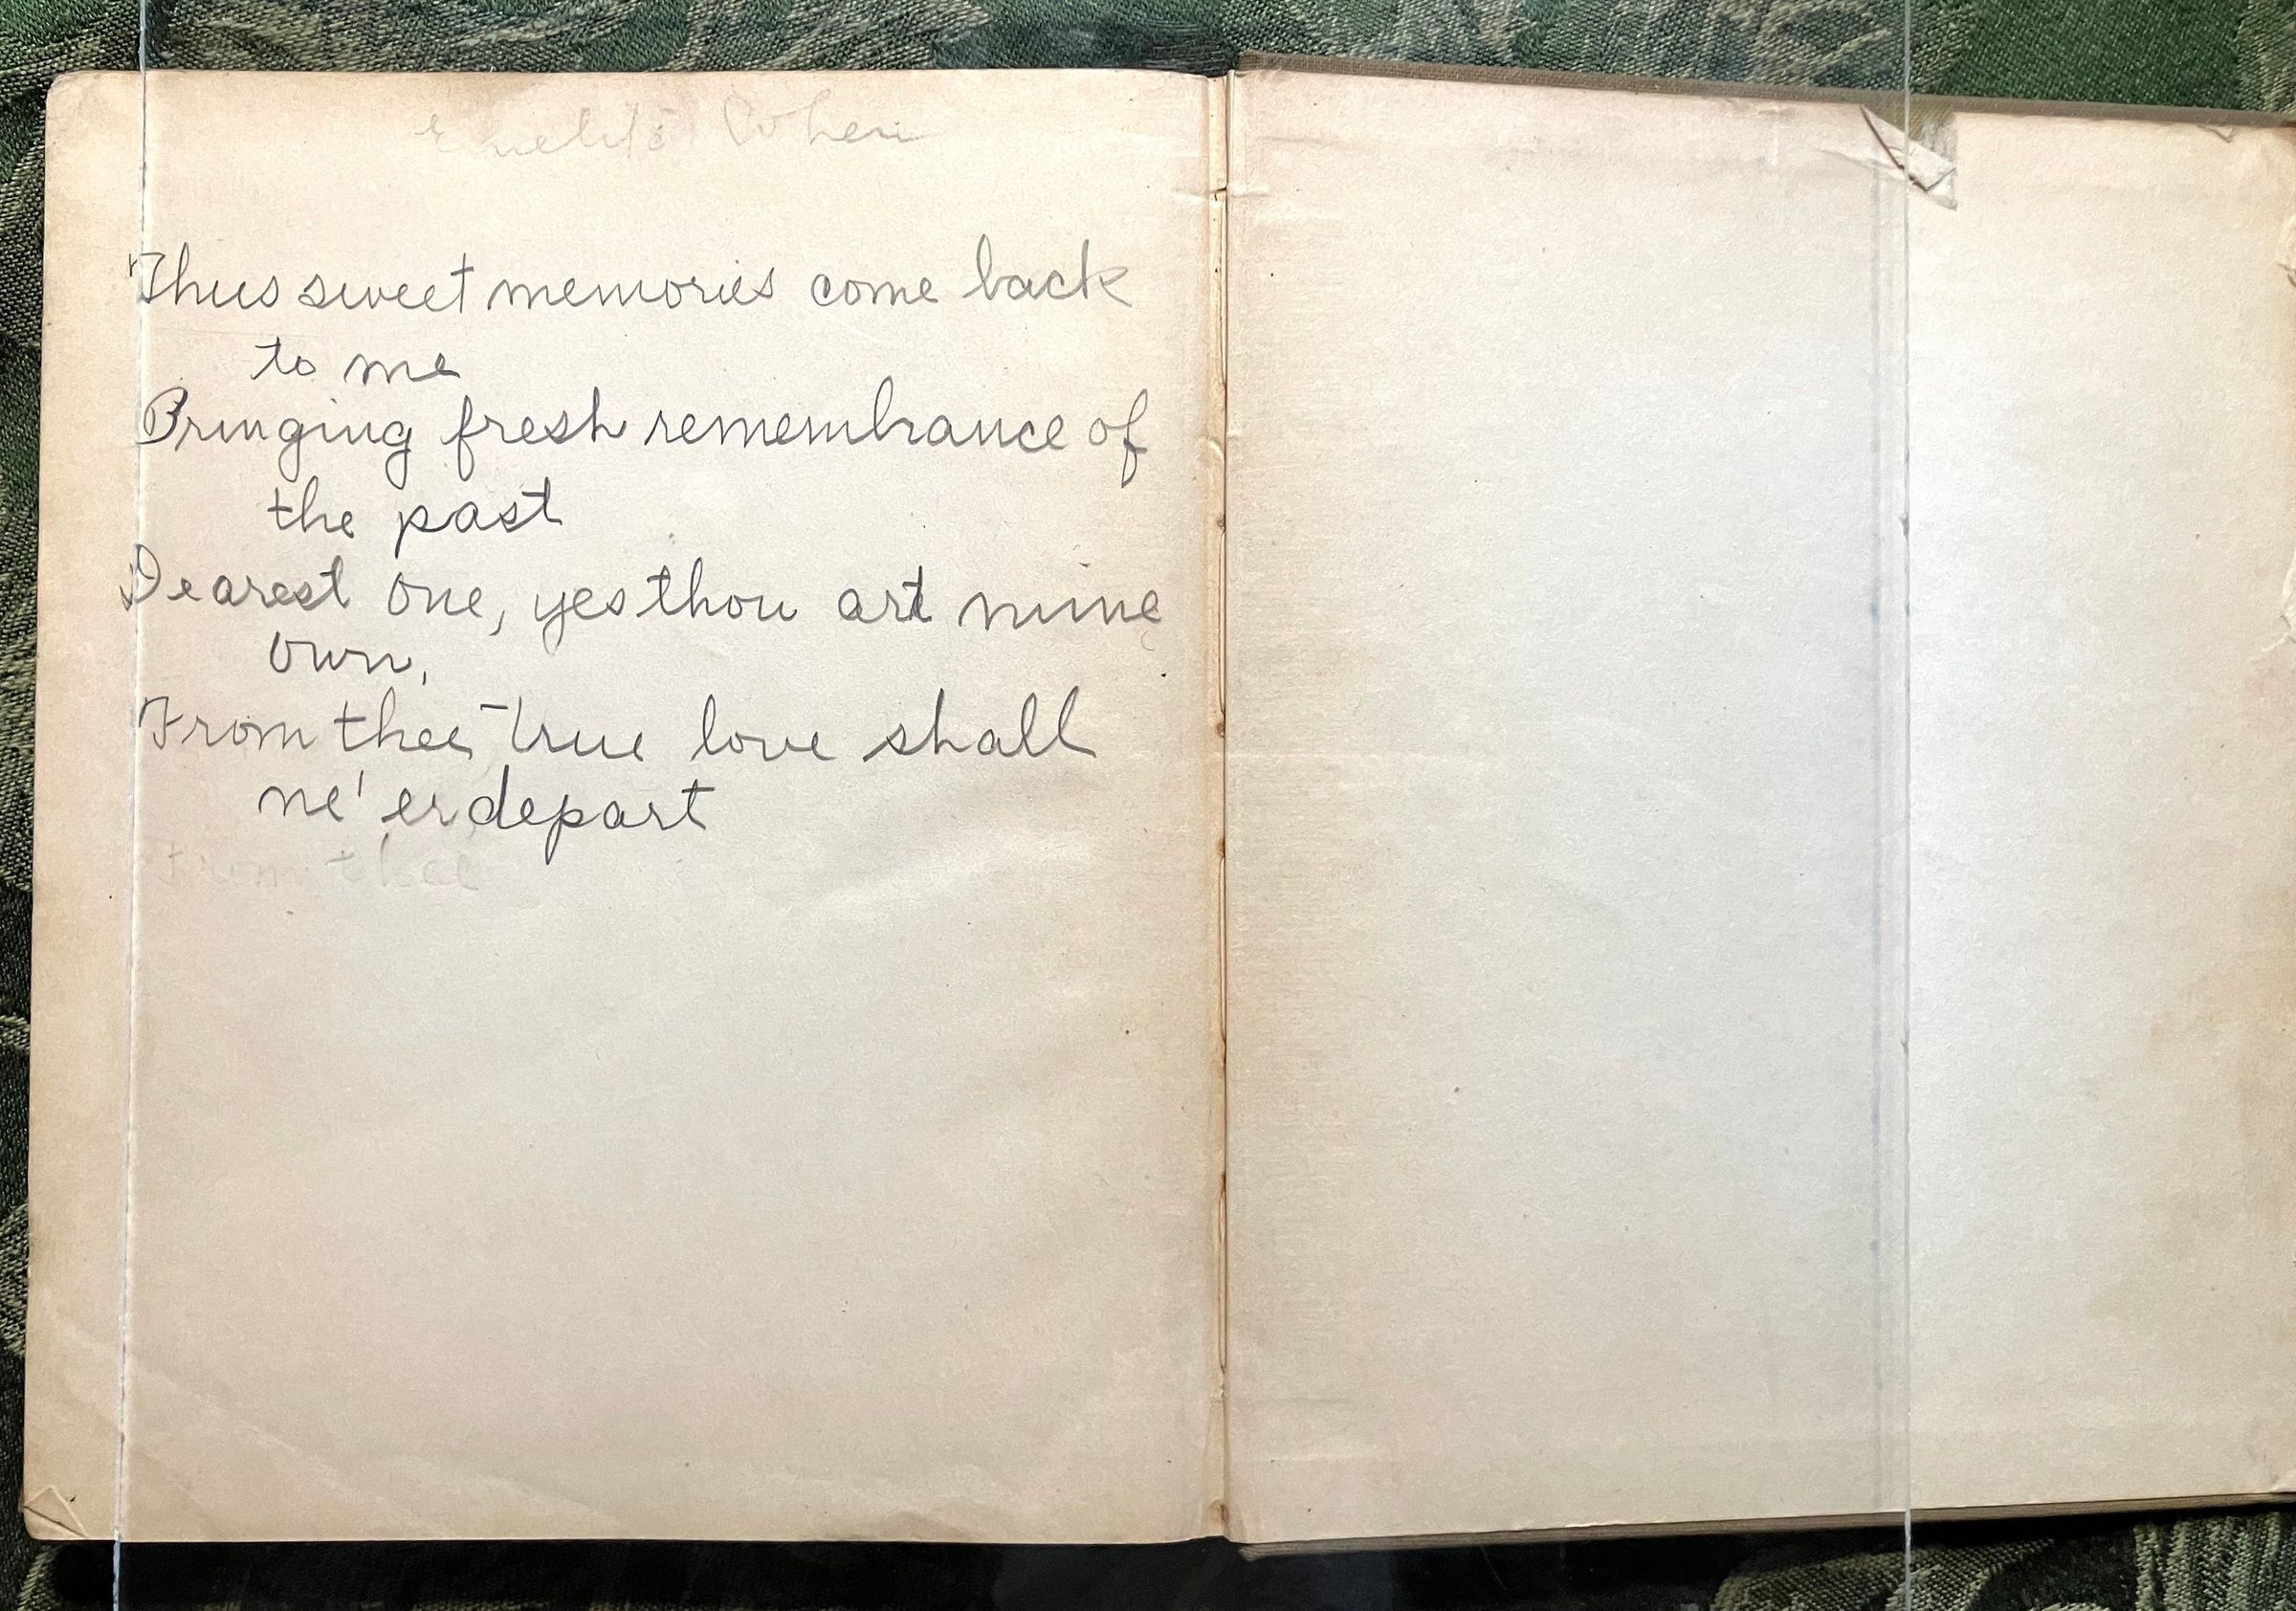 Cohen
Thus sweet memories come back
to me
Bringing fresh remembrance of
the past
Dearest one, yes thou art mine
own,
From thee true love shall
ne'er depart
From thee